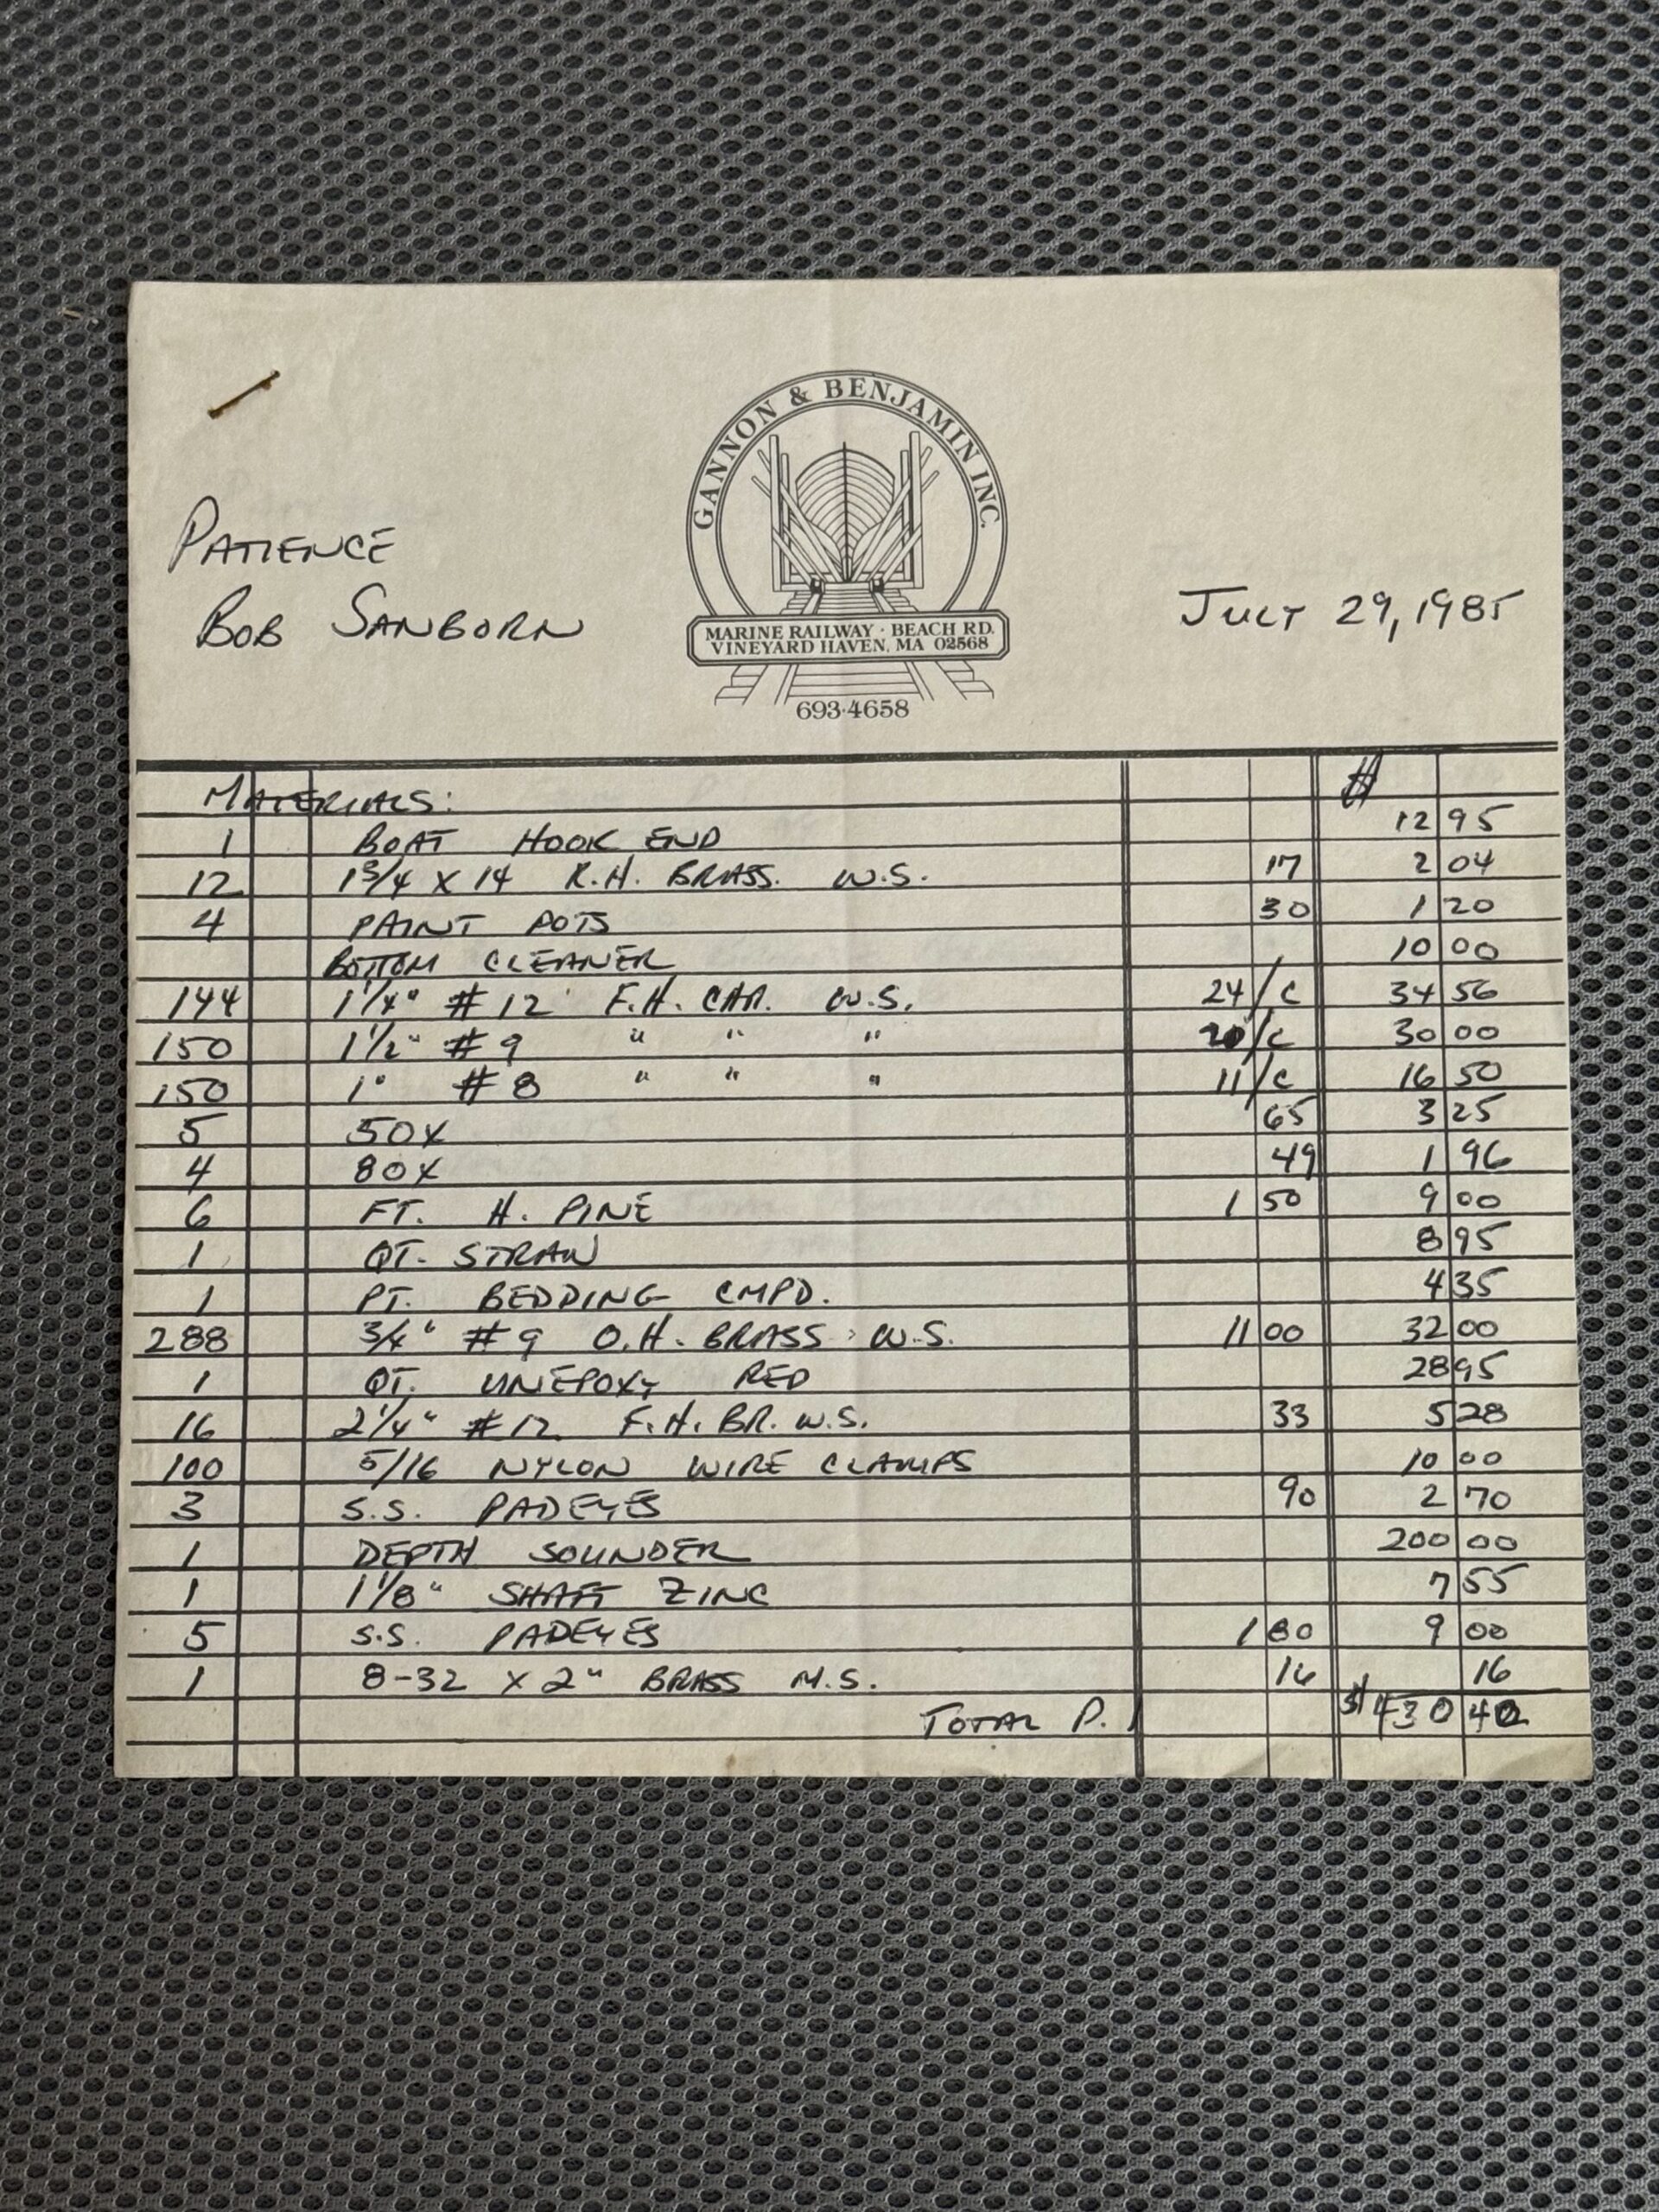 GANNON & BENJAMIN INC.
MARINE RAILWAY · BEACH RD.
VINEYARD HAVEN, MA 02568
693·4658
PATIENCE
BOB SANBORN
JULY 29, 1985
MATERIALS: $
1 BOAT HOOK END 12 95
12 1 3/4 X 14 R.H. BRASS. W.S. 17 2 04
4 PAINT POTS 30 1 20
BOTTOM CLEANER 10 00
144 1 1/4" #12 F.H. CAR. W.S. 24/C 34 56
150 1 1/2" #9 " " " 20/C 30 00
150 1" #8 " " " 11/C 16 50
5 50X 65 3 25
4 80X 49 1 96
6 FT. H. PINE 1 50 9 00
1 QT. STRAW 8 95
1 PT. BEDDING CMPD. 4 35
288 3/4" #9 O.H. BRASS W.S. 11 00 32 00
1 QT. UNEPOXY RED 28 95
16 2 1/4" #12 F.H. BR. W.S. 33 5 28
100 5/16 NYLON WIRE CLAMPS 10 00
3 S.S. PADEYES 90 2 70
1 DEPTH SOUNDER 200 00
1 1 1/8" SHAFT ZINC 7 55
5 S.S. PADEYES 1 80 9 00
1 8-32 X 2" BRASS M.S. 16 16
TOTAL P. 1 $430 40